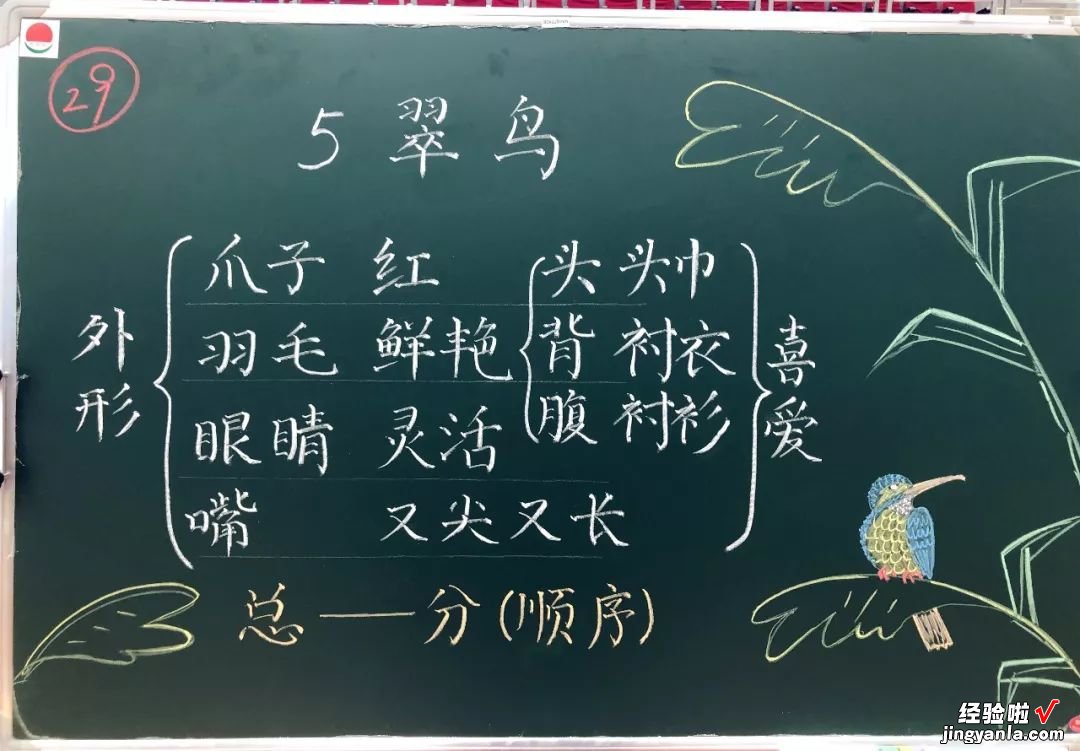 29
5 翠鸟
外形
爪子 红 头 头巾
羽毛 鲜艳 背 衬衣
眼睛 灵活 腹 衬衫
嘴 又尖又长
喜爱
总——分(顺序)
经验啦√
jingyanla.com